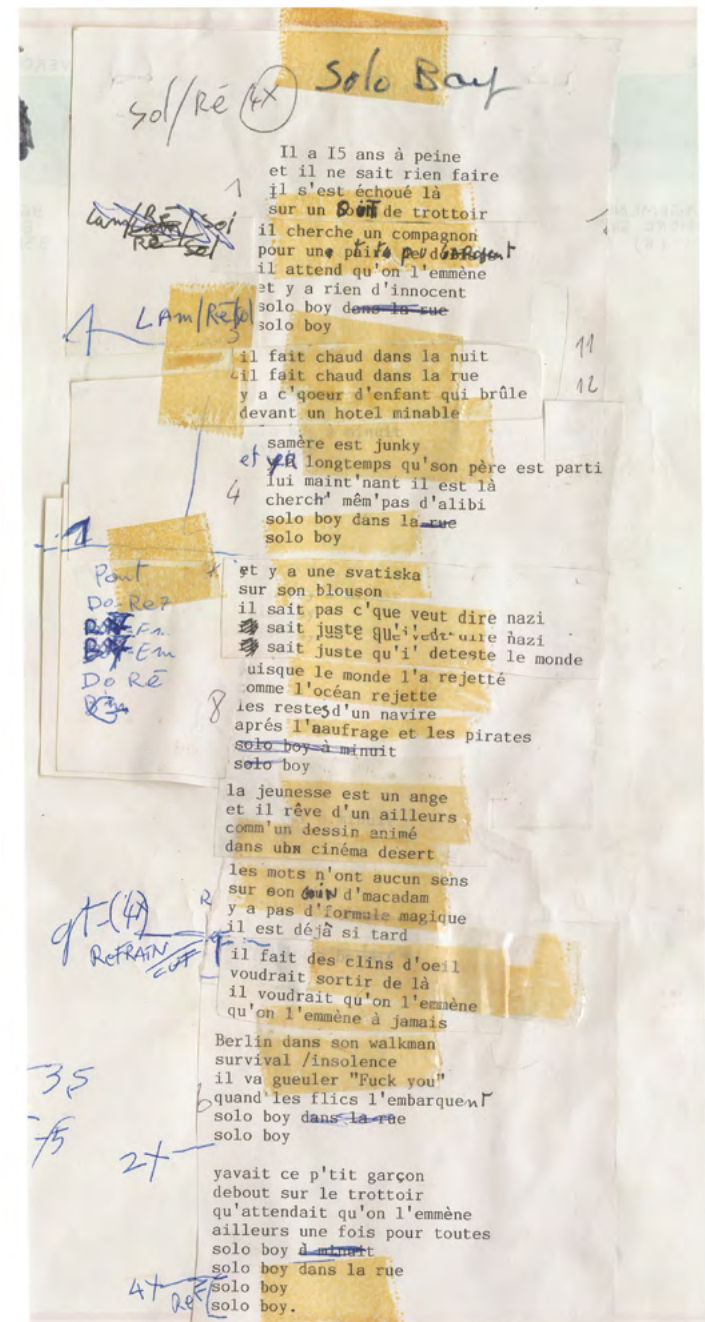 Solo Boy
Sol/Ré 4X
Il a I5 ans à peine
et il ne sait rien faire
1 il s'est échoué là
sur un bout de trottoir
Lam/Ré/Sol
Ré Sol
il cherche un compagnon
pour une petite peu d'argent
il attend qu'on l'emmène
et y a rien d'innocent
solo boy dans la rue
LAm/Ré/Sol
solo boy
il fait chaud dans la nuit 11
il fait chaud dans la rue
y a c'qoeur d'enfant qui brûle 12
devant un hotel minable
samère est junky
et longtemps qu'son père est parti
lui maint'nant il est là
4 cherch' mêm'pas d'alibi
solo boy dans la rue
solo boy
1
Pont
Do-Ré7
Em
Em
Do Ré
et y a une svatiska
sur son blouson
il sait pas c'que veut dire nazi
sait juste qu'i' deteste le monde
uisque le monde l'a rejetté
omme l'océan rejette
8 les restes d'un navire
aprés l'naufrage et les pirates
solo boy à minuit
solo boy
la jeunesse est un ange
et il rêve d'un ailleurs
comm'un dessin animé
dans ubn cinéma desert
les mots n'ont aucun sens
sur son coin d'macadam
y a pas d'formule magique
il est déjà si tard
gt-(4X)
REFRAIN
cut
il fait des clins d'oeil
voudrait sortir de là
il voudrait qu'on l'emmène
qu'on l'emmène à jamais
Berlin dans son walkman
survival /insolence
il va gueuler "Fuck you"
6 quand les flics l'embarquent
solo boy dans la rue
solo boy
2X
yavait ce p'tit garçon
debout sur le trottoir
qu'attendait qu'on l'emmène
ailleurs une fois pour toutes
solo boy à minuit
solo boy dans la rue
4X REF solo boy
solo boy.